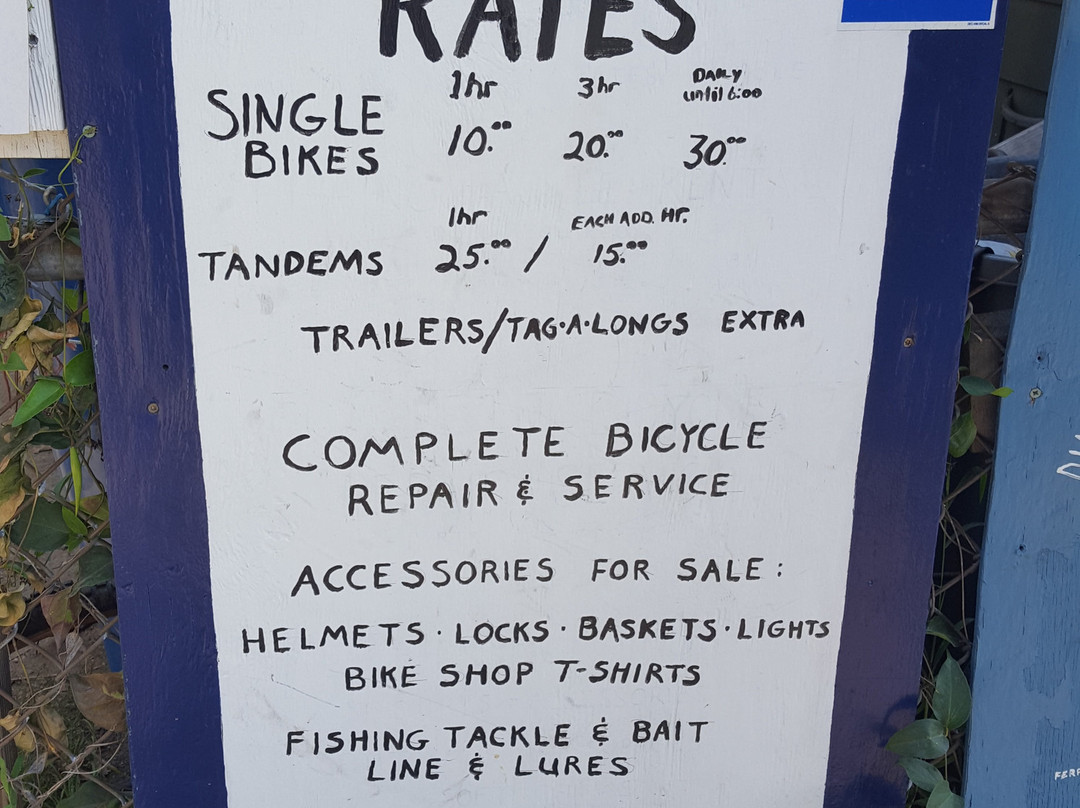 RATES
1hr 3hr DAILY until 6:00
SINGLE BIKES 10.00 20.00 30.00
1hr EACH ADD. Hr.
TANDEMS 25.00 / 15.00
TRAILERS/TAG·A·LONGS EXTRA
COMPLETE BICYCLE
REPAIR & SERVICE
ACCESSORIES FOR SALE:
HELMETS · LOCKS · BASKETS · LIGHTS
BIKE SHOP T-SHIRTS
FISHING TACKLE & BAIT
LINE & LURES